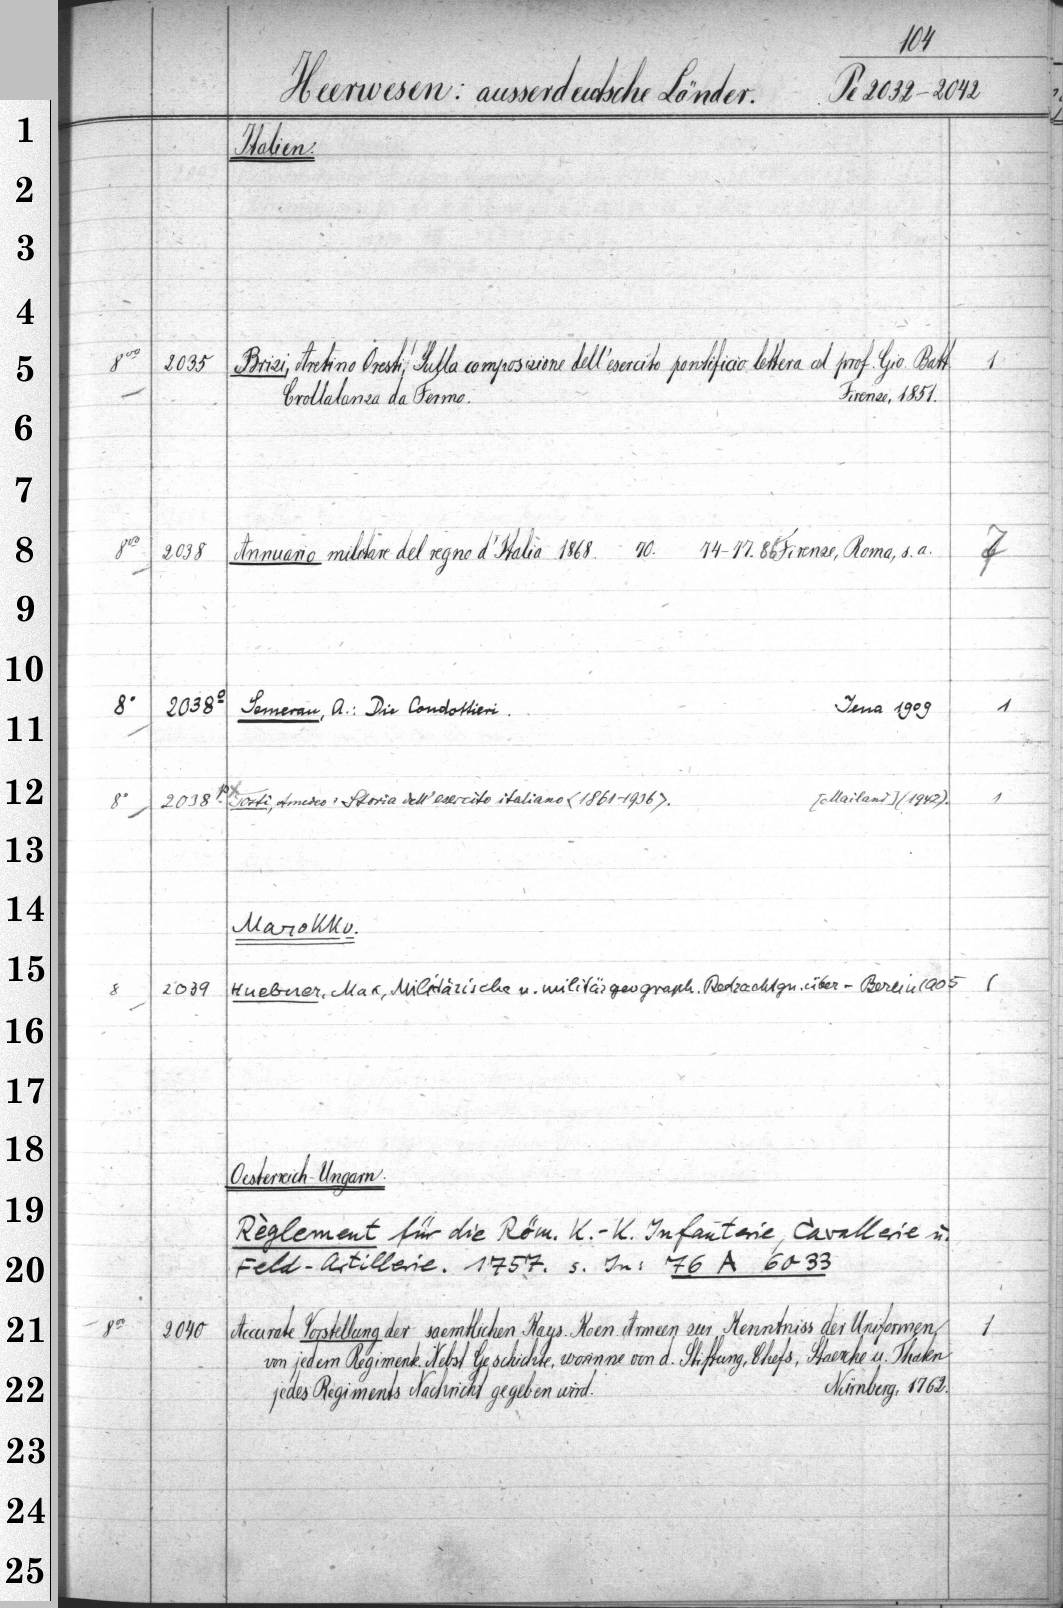 104
Heerwesen: ausserdeutsche Länder. Pe 2032-2042
1
Italien.
2
3
4
5
8vo 2035 Brizi, Aretino Oresti, Sulla composizione dell'esercito pontificio lettera al prof. Gio. Batt. 1
Crollalanza da Fermo. Firenze, 1851.
6
7
8
8vo 2038 Annuario militare del regno d'Italia 1868. 70. 74-77. 86 Firenze, Roma, s. a. 7
9
10
8° 2038a Semerau, A.: Die Condottieri. Jena 1909 1
11
12
8° 2038 Tosti, Amedeo: Storia dell'esercito italiano <1861-1936>. [Mailand] (1942). 1
13
14
Marokko.
15
8 2039 Huebner, Max, Militärische u. militärgeograph. Betrachtgn. über - Berlin 1905 1
16
17
18
Oesterreich-Ungarn.
19
Règlement für die Röm. K.-K. Infanterie, Cavallerie u.
20
Feld-Artillerie. 1757. s. In: 76 A 6033
21
8vo 2040 Accurate Vorstellung der saemtlichen Kays. Koen. Armeen zur Kenntniss der Uniformen, 1
von jedem Regimente. Nebst Geschichte, worinne von d. Stiftung, Chefs, Staerche u. Thaten
22
jedes Regiments Nachricht gegeben wird. Nürnberg, 1762.
23
24
25